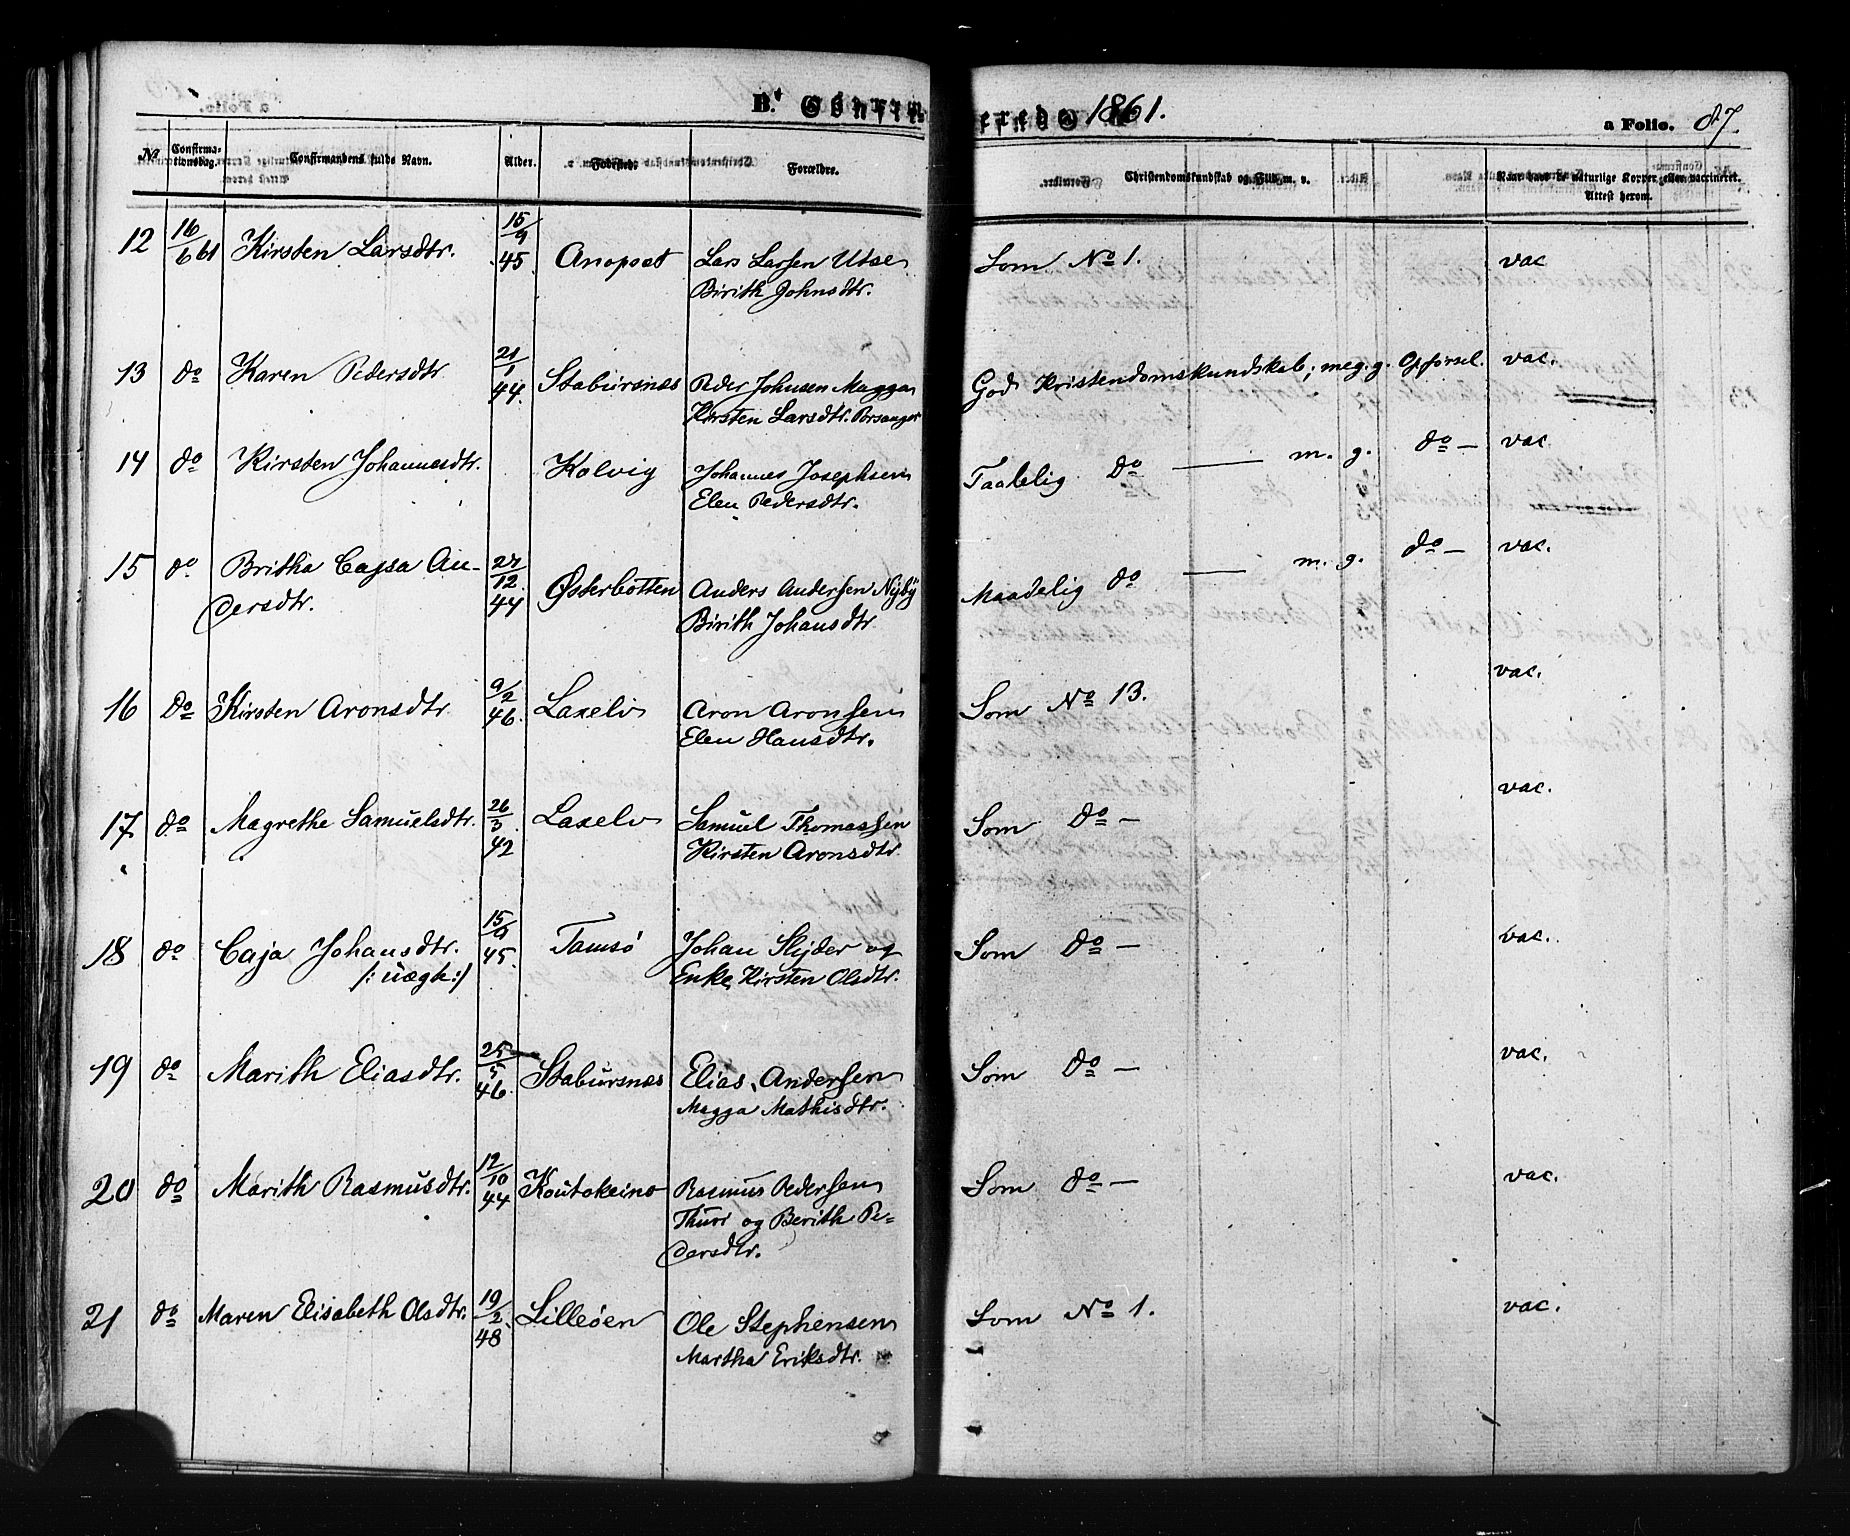 B. Confirmerede 1861. a Folio. 87.
No Confirmationsdag. Confirmandens fulde Navn. Alder. Fødested. Forældre. Christendomskundskab og Flid m. v. Naar have de naturlige Kopper eller vaccineret. Attest herom.
12 16/6 61 Kirsten Larsdtr. 15/9 45 Anopset Lars Larsen Utse Som No 1. vac
Birith Johnsdtr.
13 do Karen Pedersdtr 21/1 44. Stabursnæs Peder Johnsen Magga God Kristendomskundskab; meg. g. Opførsel. vac.
Kirsten Larsdtr. Porsanger
14 do Kirsten Johannesdtr. Kolvig Johannes Josephsen Taalelig do — m. g. do — vac
Elen Pedersdtr.
15 do Britha Cajsa An- 27/12 44 Østerbotten Anders Andersen Nyby Maadelig do — m. g. do — vac.
dersdtr. Birith Johansdtr
16 Do Kirsten Aronsdtr 9/2 46. Laxelv Aron Aronsen Som No 13. vac.
Elen Hansdtr.
17 do Magrethe Samuelsdtr. 26/3 42 Laxelv Samuel Thomassen Som do — vac.
Kirsten Aronsdtr.
18 do Caja Johansdtr. 15/9 45. Tamsø Johan Slyder og Som do — vac.
/: uægte:/ Enke Kirsten Olsdtr.
19 do Marith Eliasdtr. 25/5 46 Stabursnæs Elias Andersen Som do — vac.
Magga Mathisdtr.
20 do Marith Rasmusdtr. 12/10 44 Koutokeino Rasmus Pedersen Som do — vac.
Thuri og Berith Pe-
dersdtr.
21 do Maren Elisabeth Olsdtr. 19/2 48 Lilleøen Ole Stephensen Som No 1. vac.
Martha Eriksdtr.